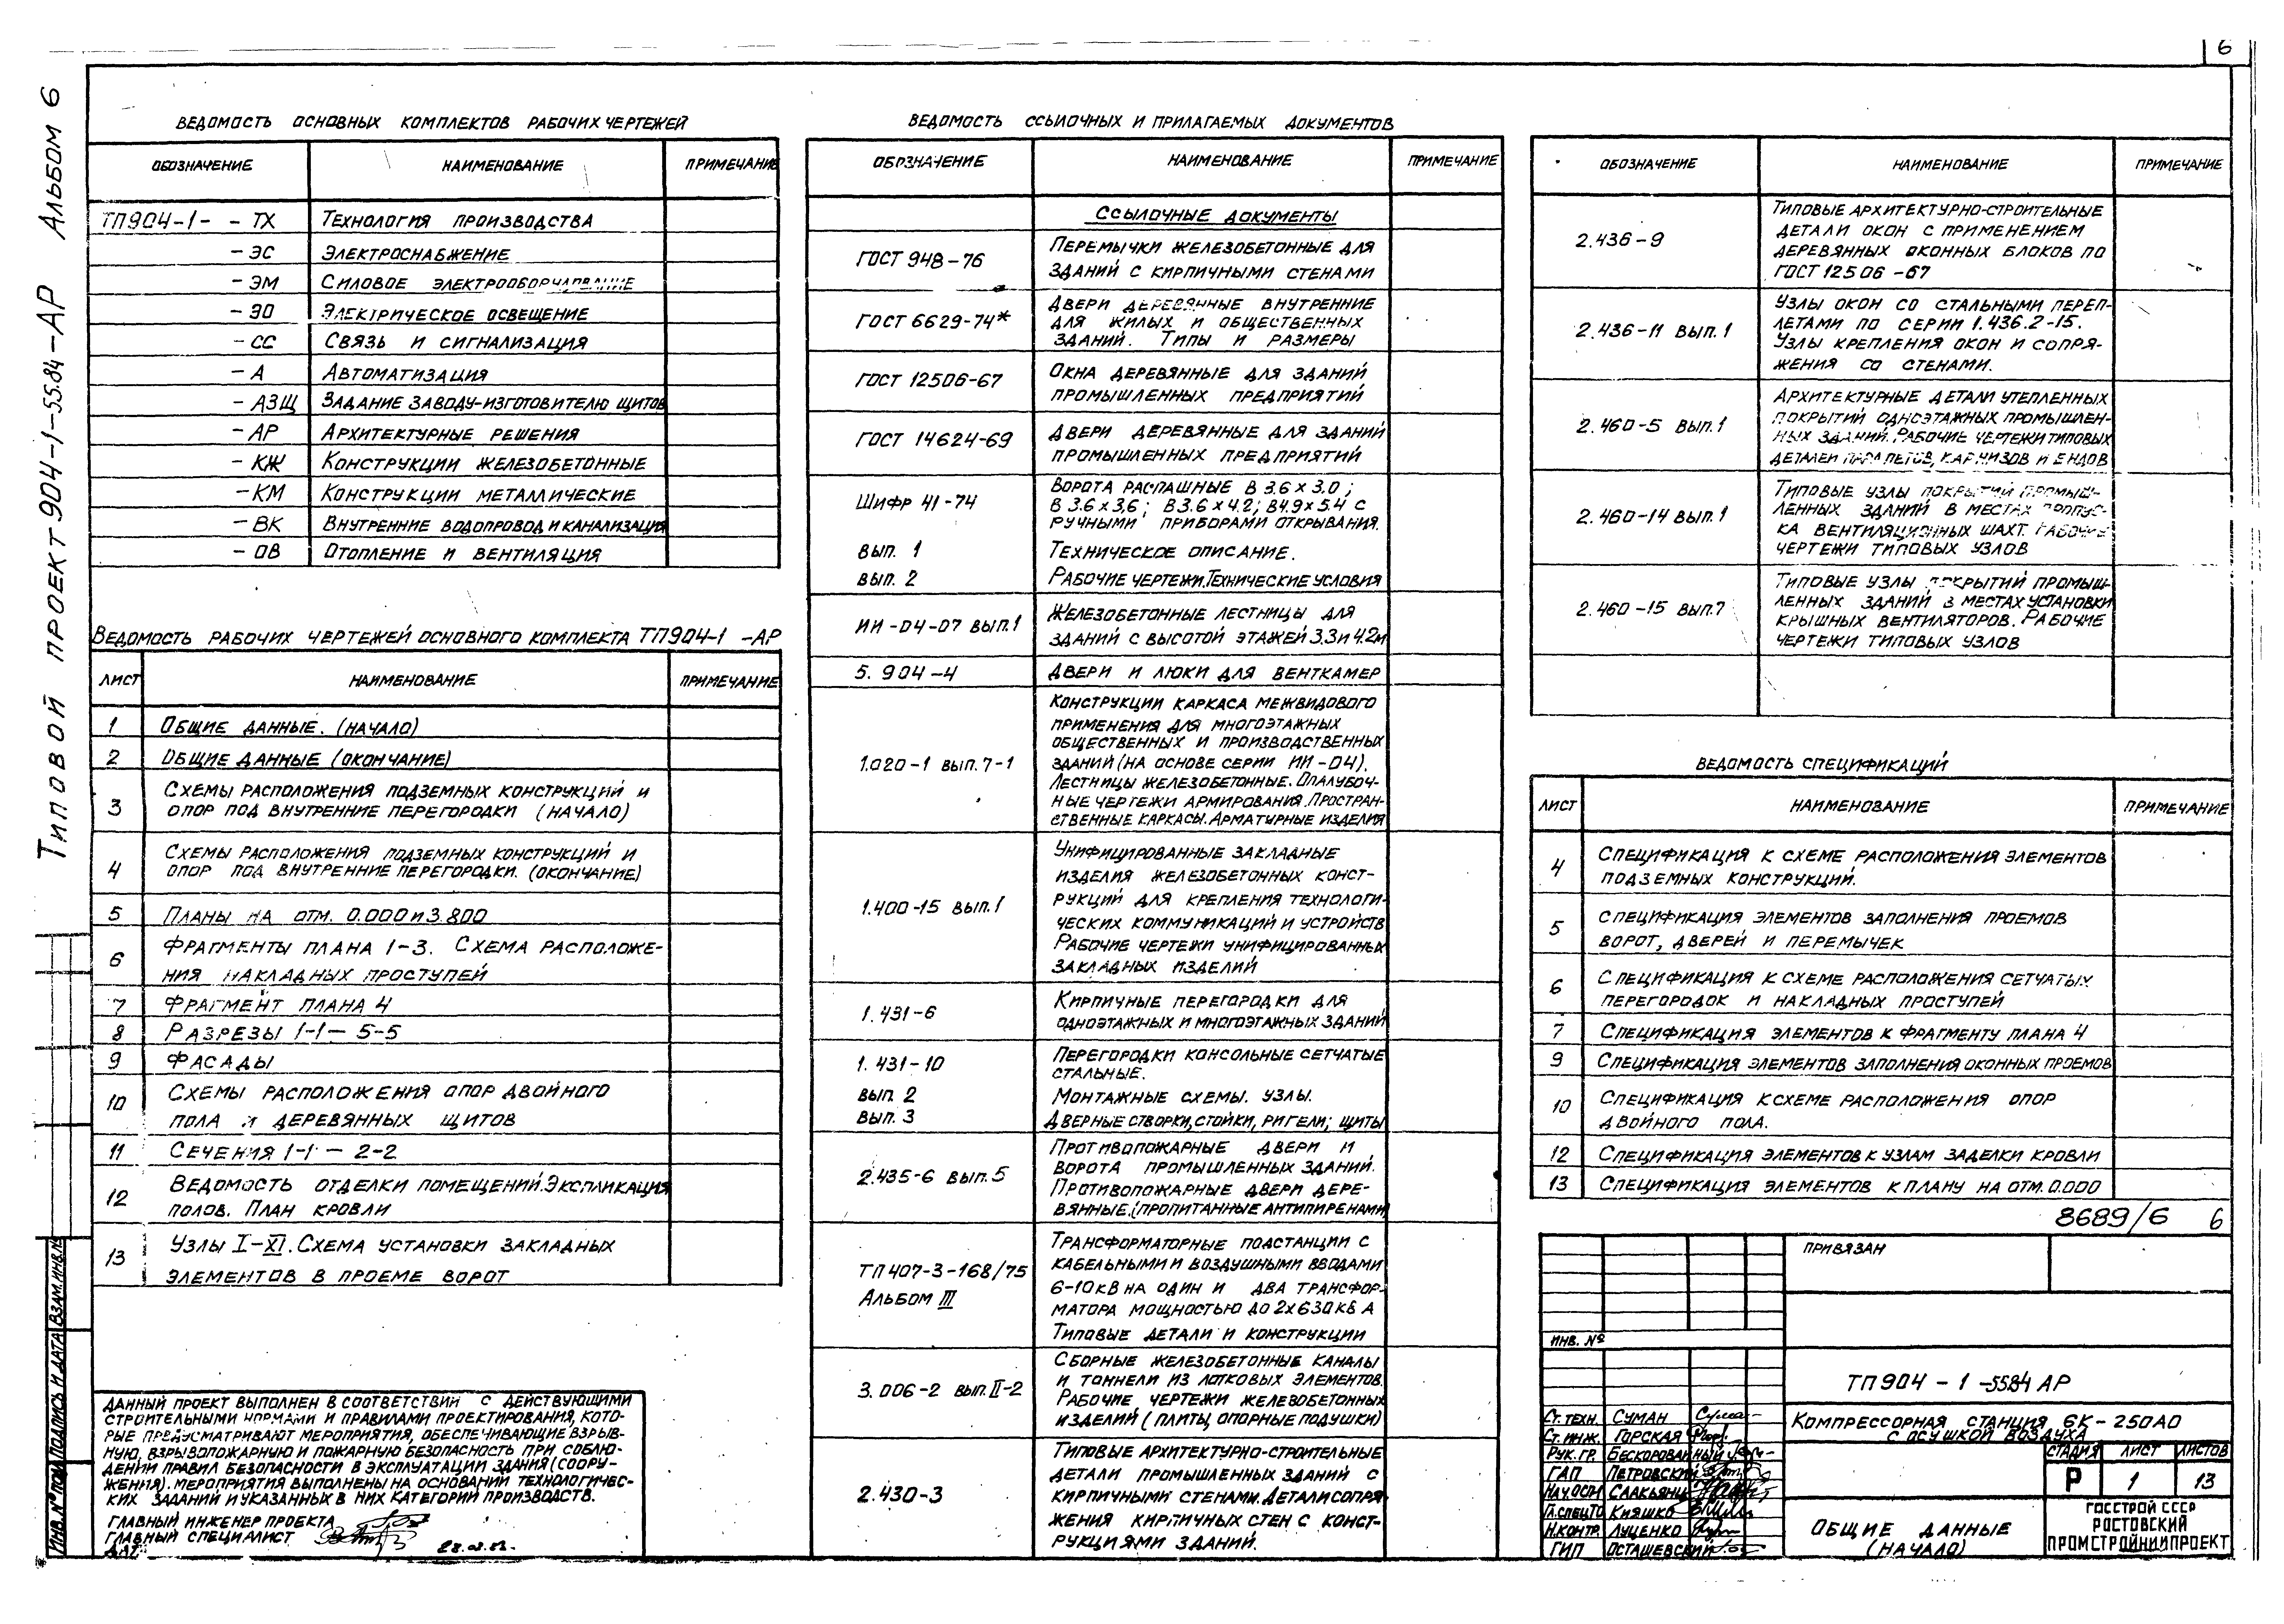 6
Типовой проект 904-1-55.84-АР Альбом 6
Ведомость основных комплектов рабочих чертежей
Обозначение Наименование Примечание
ТП904-1- -ТХ Технология производства
-ЭС Электроснабжение
-ЭМ Силовое электрооборудование
-ЭО Электрическое освещение
-СС Связь и сигнализация
-А Автоматизация
-АЗЩ Задание заводу-изготовителю щитов
-АР Архитектурные решения
-КЖ Конструкции железобетонные
-КМ Конструкции металлические
-ВК Внутренние водопровод и канализация
-ОВ Отопление и вентиляция
Ведомость рабочих чертежей основного комплекта ТП904-1 -АР
Лист Наименование Примечание
1 Общие данные. (начало)
2 Общие данные (окончание)
3 Схемы расположения подземных конструкций и
опор под внутренние перегородки (начало)
4 Схемы расположения подземных конструкций и
опор под внутренние перегородки. (окончание)
5 Планы на отм. 0.000 и 3.800
6 Фрагменты плана 1-3. Схема расположе-
ния накладных проступей
7 Фрагмент плана 4
8 Разрезы 1-1 — 5-5
9 Фасады
10 Схемы расположения опор двойного
пола и деревянных щитов
11 Сечения 1-1 — 2-2
12 Ведомость отделки помещений. Экспликация
полов. План кровли
13 Узлы I-XI. Схема установки закладных
элементов в проеме ворот
Данный проект выполнен в соответствии с действующими
строительными нормами и правилами проектирования, кото-
рые предусматривают мероприятия, обеспечивающие взрыв-
ную, взрывопожарную и пожарную безопасность при соблю-
дении правил безопасности в эксплуатации здания (соору-
жения). Мероприятия выполнены на основании технологичес-
ких заданий и указанных в них категорий производств.
Главный инженер проекта
Главный специалист
Дата
Инв.№ подл. Подпись и дата Взам.инв.№
Ведомость ссылочных и прилагаемых документов
Обозначение Наименование Примечание
Ссылочные документы
ГОСТ 948-76 Перемычки железобетонные для
зданий с кирпичными стенами
ГОСТ 6629-74* Двери деревянные внутренние
для жилых и общественных
зданий. Типы и размеры
ГОСТ 12506-67 Окна деревянные для зданий
промышленных предприятий
ГОСТ 14624-69 Двери деревянные для зданий
промышленных предприятий
Шифр 41-74 Ворота распашные В 3.6×3.0;
В 3.6×3.6; В 3.6×4.2; В 4.9×5.4 с
ручными приборами открывания.
вып. 1 Техническое описание.
вып. 2 Рабочие чертежи. Технические условия
ИИ-04-07 вып.1 Железобетонные лестницы для
зданий с высотой этажей 3.3 и 4.2м
5.904-4 Двери и люки для венткамер
1.020-1 вып.7-1 Конструкции каркаса межвидового
применения для многоэтажных
общественных и производственных
зданий (на основе серии ИИ-04).
Лестницы железобетонные. Опалубоч-
ные чертежи армирования. Простран-
ственные каркасы. Арматурные изделия
1.400-15 вып.1 Унифицированные закладные
изделия железобетонных конст-
рукций для крепления технологи-
ческих коммуникаций и устройств
Рабочие чертежи унифицированных
закладных изделий
1.431-6 Кирпичные перегородки для
одноэтажных и многоэтажных зданий
1.431-10 Перегородки консольные сетчатые
стальные.
вып. 2 Монтажные схемы. Узлы.
вып. 3 Дверные створки, стойки, ригели; щиты
2.435-6 вып.5 Противопожарные двери и
ворота промышленных зданий.
Противопожарные двери дере-
вянные. (пропитанные антипиренами)
ТП407-3-168/75 Трансформаторные подстанции с
кабельными и воздушными вводами
Альбом III 6-10кВ на один и два трансфор-
матора мощностью до 2х630кВА
Типовые детали и конструкции
3.006-2 вып.II-2 Сборные железобетонные каналы
и тоннели из лотковых элементов.
Рабочие чертежи железобетонных
изделий (плиты, опорные подушки)
2.430-3 Типовые архитектурно-строительные
детали промышленных зданий с
кирпичными стенами. Детали сопря-
жения кирпичных стен с конст-
рукциями зданий.
Обозначение Наименование Примечание
2.436-9 Типовые архитектурно-строительные
детали окон с применением
деревянных оконных блоков по
ГОСТ 12506-67
2.436-11 вып.1 Узлы окон со стальными переп-
летами по серии 1.436.2-15.
Узлы крепления окон и сопря-
жения со стенами.
2.460-5 вып.1 Архитектурные детали утепленных
покрытий одноэтажных промышлен-
ных зданий. Рабочие чертежи типовых
деталей парапетов, карнизов и ендов
2.460-14 вып.1 Типовые узлы покрытий промыш-
ленных зданий в местах пропус-
ка вентиляционных шахт. Рабочие
чертежи типовых узлов
2.460-15 вып.7 Типовые узлы покрытий промыш-
ленных зданий в местах установки
крышных вентиляторов. Рабочие
чертежи типовых узлов
Ведомость спецификаций
Лист Наименование Примечание
4 Спецификация к схеме расположения элементов
подземных конструкций.
5 Спецификация элементов заполнения проемов
ворот, дверей и перемычек
6 Спецификация к схеме расположения сетчатых
перегородок и накладных проступей
7 Спецификация элементов к фрагменту плана 4
9 Спецификация элементов заполнения оконных проемов
10 Спецификация к схеме расположения опор
двойного пола.
12 Спецификация элементов к узлам заделки кровли
13 Спецификация элементов к плану на отм. 0.000
8689/6 6
Привязан
Инв. №
ТП904-1-55.84 АР
Компрессорная станция 6К-250АО
с осушкой воздуха
Ст.техн. Суман
Ст.инж. Горская
Рук.гр. Бескоровайный
ГАП Петровский
Гл.спец.ТО Кияшко
Н.контр. Луценко
ГИП Осташевский
Стадия Лист Листов
Р 1 13
Общие данные
(начало)
Госстрой СССР
Ростовский
Промстройниипроект